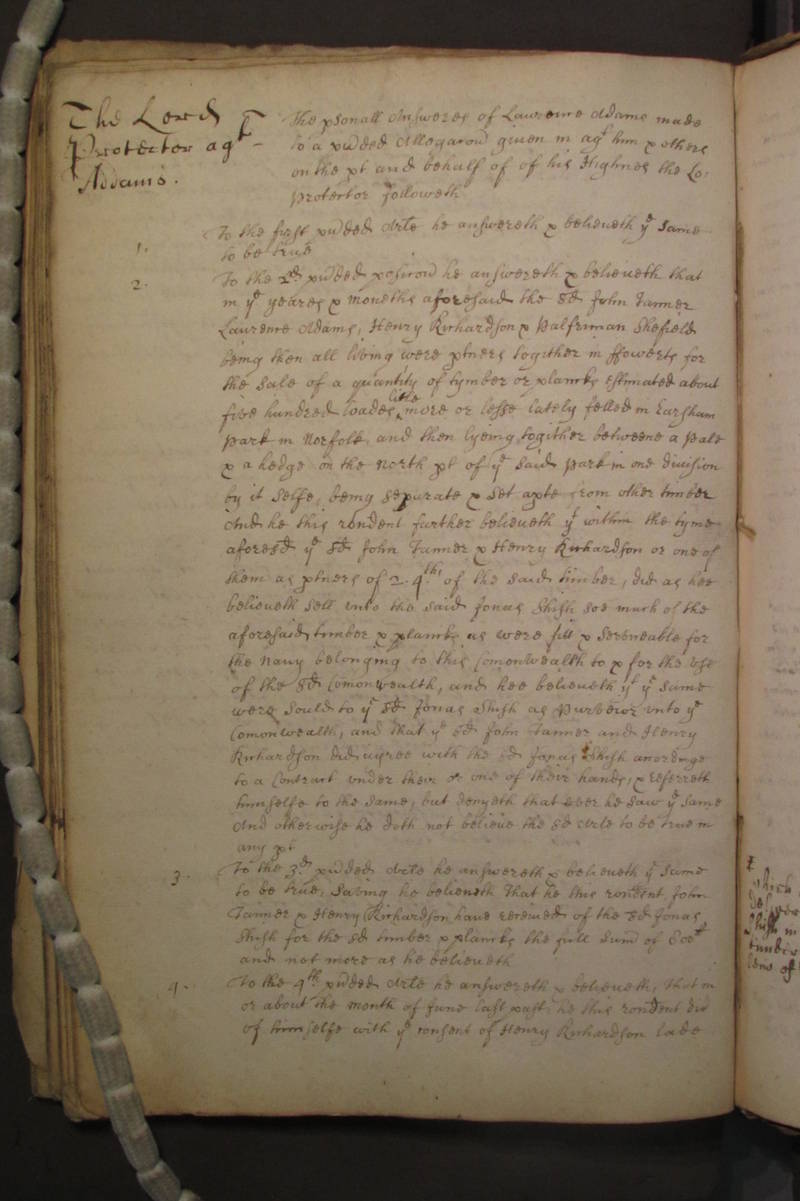 The Lord
Protector agt
Addams.
The psonall Answeres of Laurence Adams made
to a pr̃tded Allegac̃on giuen in agt him & others
on the pt and behalf of of his Highnes the Lo:
Protector followeth
1. To the first pr̃tded Arle he answereth & belieueth ye same
to be true
2. To the 2d pr̃tded posic̃on he answereth & belieueth that
in ye yeares & moneths aforesaid the sd John Tanner
Laurence Adams, Henry Richardson & Palfriman Shefield
being then all living were ptners together in
the sale of a quantity of tymber or plancks estimated about
five hundred loades little more or lesse lately felled in Earsham
Park in Norfolk, and then lyeing together betweene a pale
& a hedge on the North pt of ye said park in one division
by it selfe, being separate & set apte from other timber
And he this rondent further belieueth yt within the tyme
aforesd ye sd John Tanner & Henry Richardson or one of
them as ptners of 2. 4ths of the said timber, did as hee
belieueth sell unto the said Jonas Shish soe much of the
aforesaid timber & plancks as were fitt & serviceable for
the Navy belonging to this Comonwealth to & for the use
of the sd Comonwealth, and hee believeth yt ye same
were sould to ye sd Jonas Shish as Purveior unto ye
Comonwealth, and that ye sd John Tanner and Henry
Richardson did agree with the sd Jonas Shish according
to a Contract under their or one of their hands, & referreth
himselfe to the same, but denyeth that ever he saw ye same
And otherwise he doth not believe the sd Arle to be true in
any pt
3. To the 3d pr̃tded Arle he answereth & belieueth ye same
to be true, Saving he belieueth that he this rondent John
Tanner & Henry Richardson have received of the sd Jonas
Shish for the sd timber & plancks the full sum̃ of
and not more as he belieueth
4. To the 4th pr̃tded Arle he answereth & belieueth, that in
or about the month of June last past, he this rondent did
of himselfe with ye consent of Henry Richardson lade
which
Shish in
timber